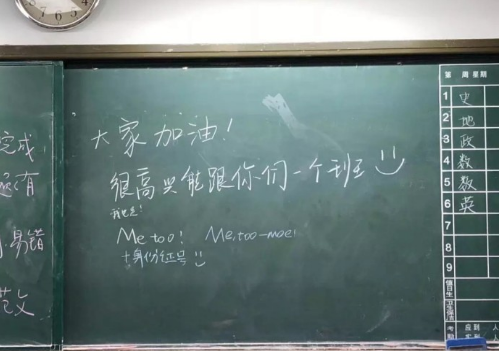 大家加油！
很高兴能跟你们一个班
我也是！
Me too! Me, too~moe!
+身份证号
完成，
有
易错
范文
第 周 星期
1 史
2 地
3 政
4 数
5 数
6 英
7
8
9
值日生
应到 人